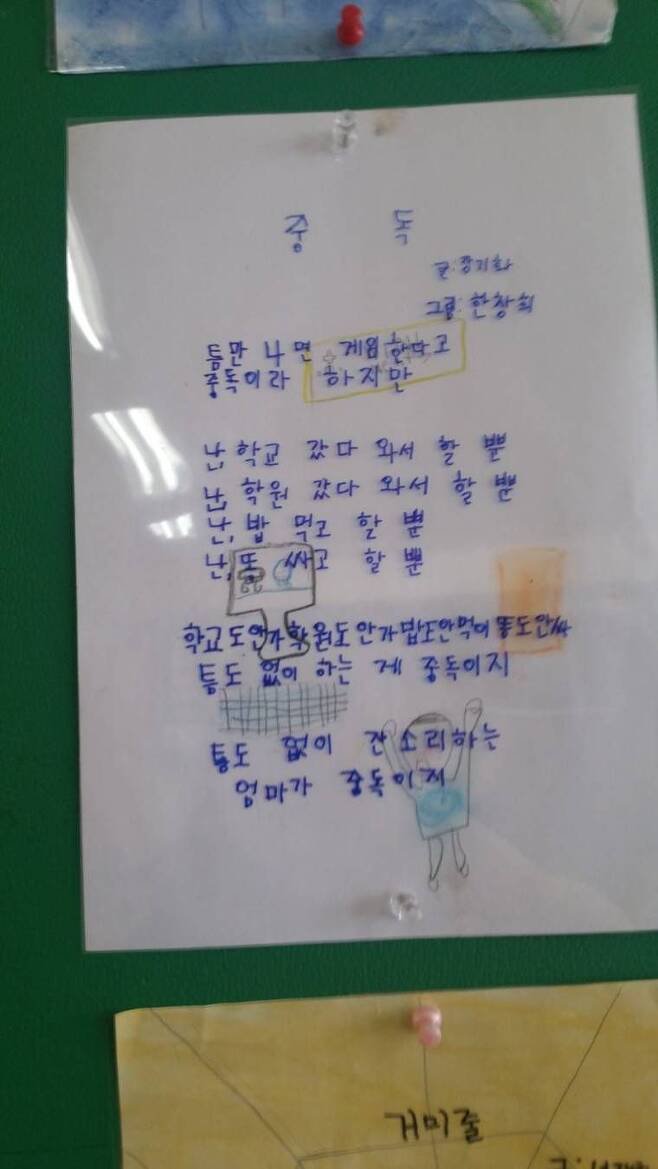 중 독
글:장기화
그림:한창희
틈만 나면 게임한다고
중독이라 하지만
난, 학교 갔다 와서 할 뿐
난, 학원 갔다 와서 할 뿐
난, 밥 먹고 할 뿐
난, 또 싸고 할 뿐
학교도안가학원도안가밥도안먹어똥도안싸
틈도 없이 하는 게 중독이지
틈도 없이 잔소리하는
엄마가 중독이지
거미줄